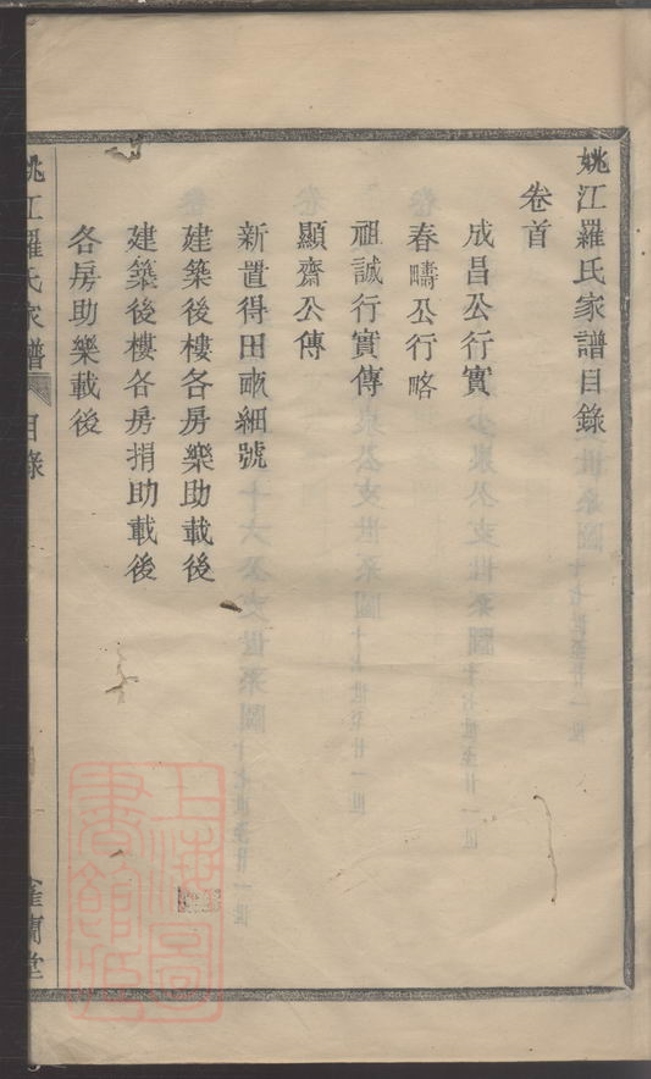 姚江羅氏家譜目錄
卷首
成昌公行實
春疇公行略
祖誠行實傳
顯齋公傳
新置得田畝細號
建築後樓各房樂助載後
建築後樓各房捐助載後
各房助樂載後
姚江羅氏家譜 目錄 一 蘭堂
上海圖書館藏